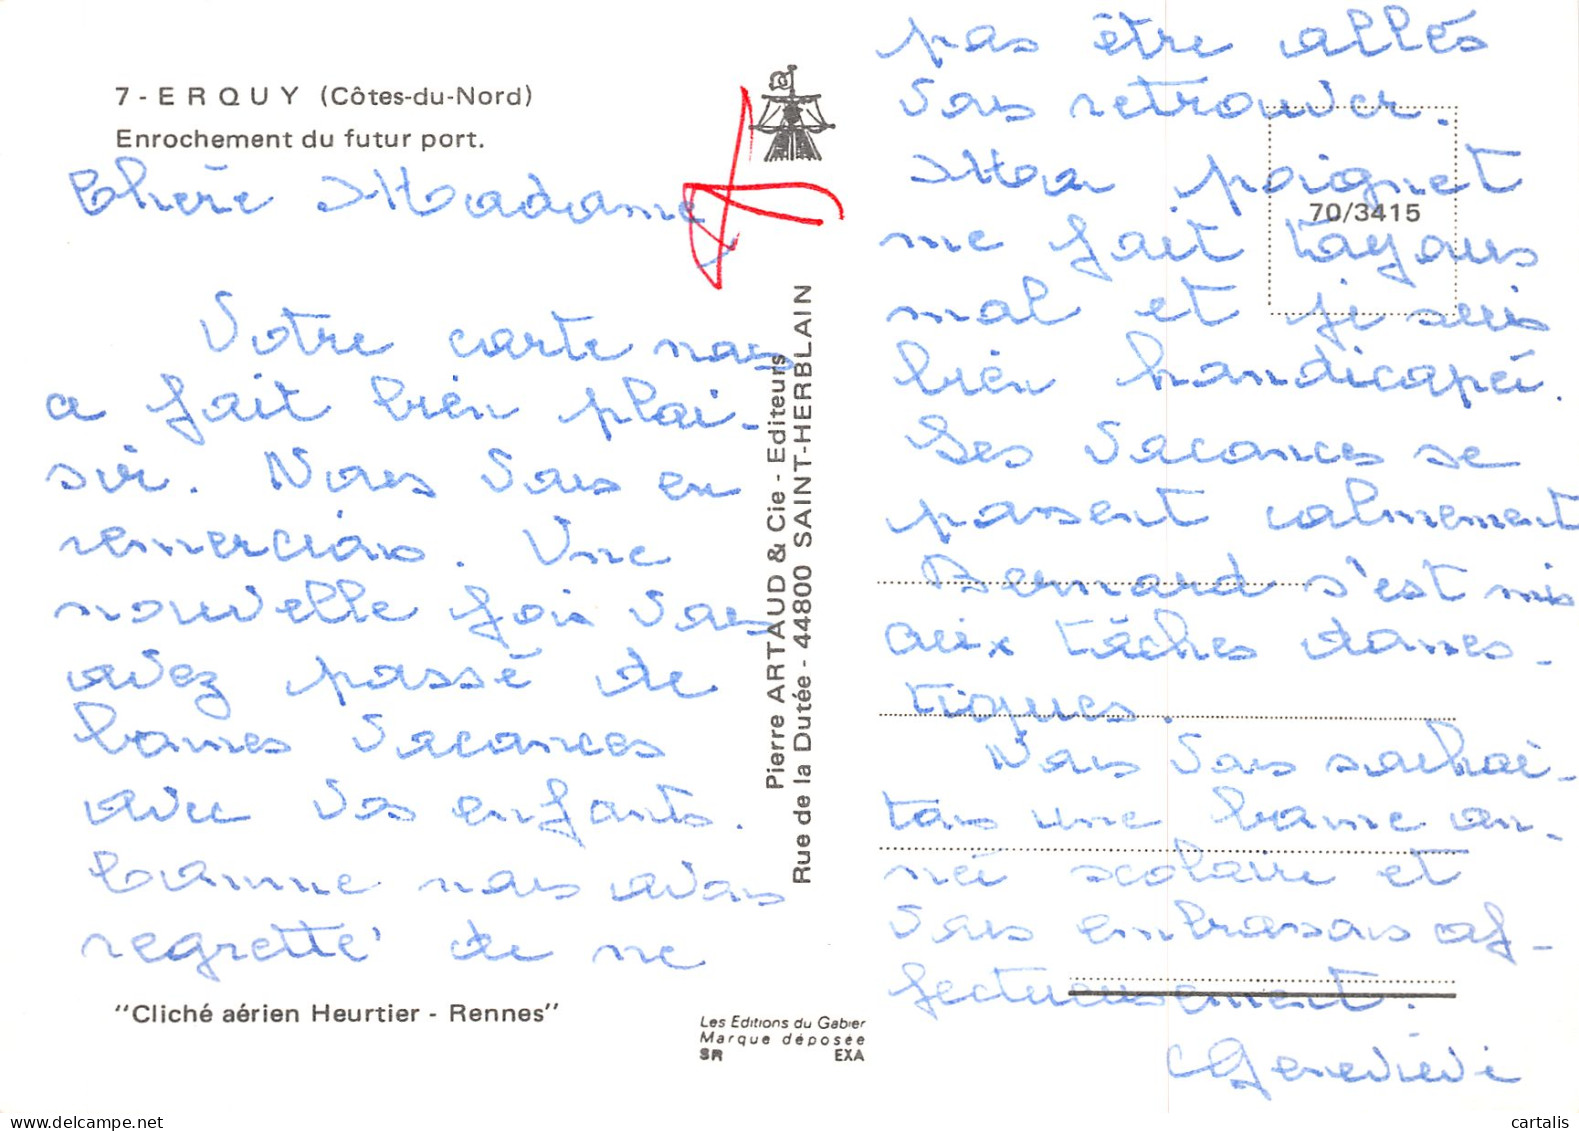 7 - ERQUY (Côtes-du-Nord)
Enrochement du futur port.
Chère Madame,
Votre carte nous
a fait bien plai-
sir. Nous vous en
remercions. Une
nouvelle fois vous
avez passé de
bonnes vacances
avec vos enfants.
Comme nous avons
regretté de ne
"Cliché aérien Heurtier - Rennes"
Pierre ARTAUD & Cie - Editeurs
Rue de la Dutée - 44800 SAINT-HERBLAIN
Les Editions du Gabier
Marque déposée
SR EXA
pas être allés
vous retrouver.
Mon poignet
me fait toujours
mal et je suis
bien handicapée.
Les vacances se
passent calmement
Bernard s'est mis
aux tâches domes-
tiques.
Nous vous souhai-
tons une bonne an-
née scolaire et
vous embrassons af-
fectueusement.
Geneviève
70/3415
www.cartalis.com